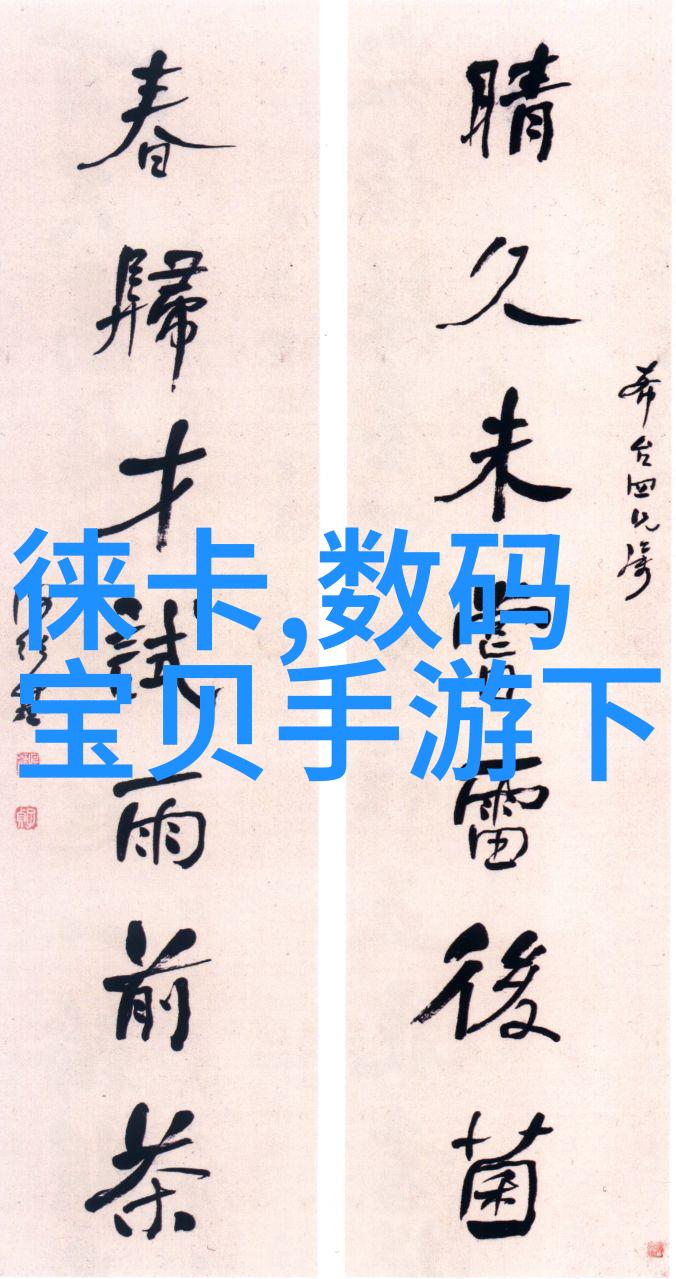 晴久未嘗雷後菌
春歸才試雨前茶
徕卡,数码
宝贝手游下